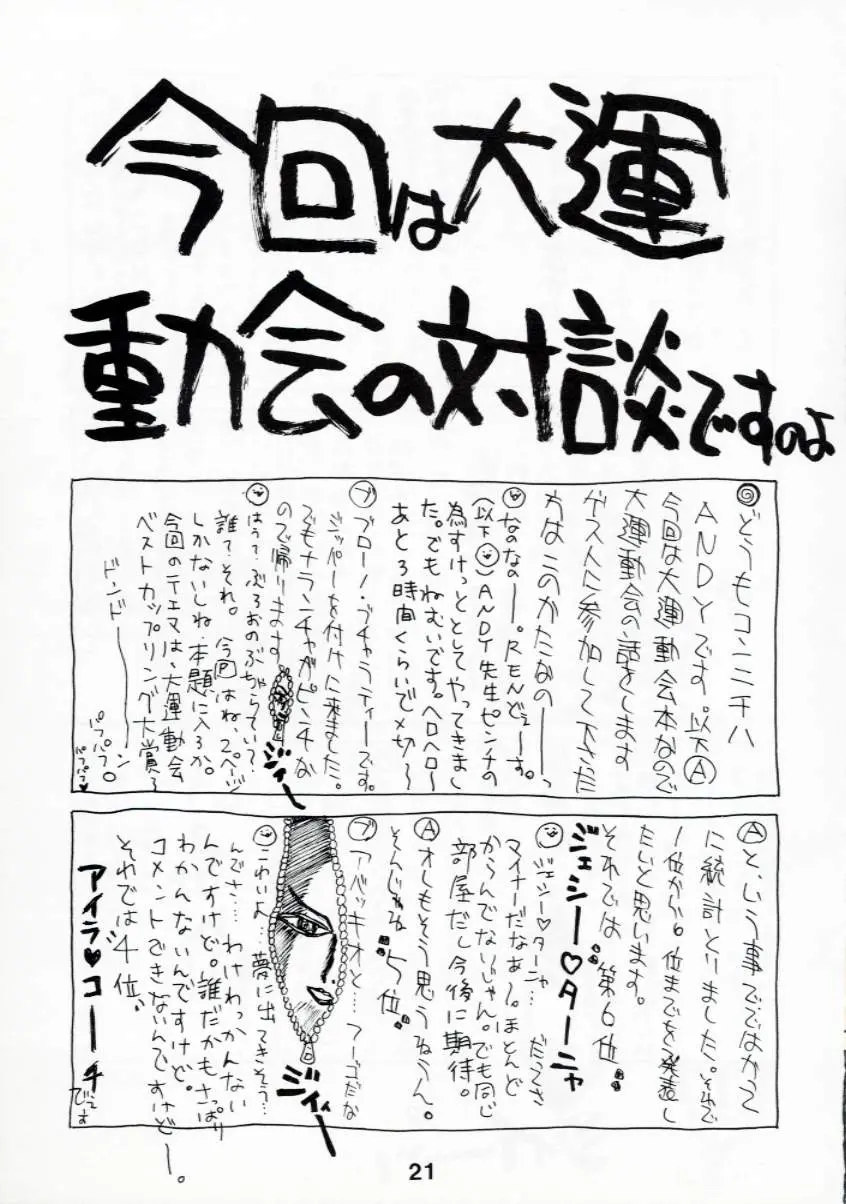 今回は大運
動会の対談ですのよ
どうもコンニチハ
ANDYです。以下Ⓐ
今回は大運動会本なので
大運動会の話をします
ゲストに参加して下さった
方はこのかたなの――っ
なのなのー。RENどぇーす。
(以下 )ANDY先生ピンチの
為すけっととしてやってきまし
た。でもねむいです。ヘロヘロ〜
あと3時間くらいで〆切〜
ブ ブローノ・ブチャラティーです。
ジッパーを付けに来ました。
でもナランチャがピンチな
ので帰ります
ジィー
はうてぶろおのぶちゃらていて
誰てそれ。今回はね、2ページ
しかないしね・本題に入ろか。
今回のテエマは、大運動会
ベストカップリング大賞〜
ドンドーーン
パフパフ。
パフパフ♥
Ⓐと、いう事でではかって
に統計とりました。それで
1位から6位までを発表し
たいと思います。
それでは〝第6位〟
ジェシー♡ターニャ
ジェシー♡ターニャ… だってさ
マイナーだなぁ〜。ほとんど
からんでないじゃん。でも同じ
部屋だし今後に期待。
Ⓐオレもそう思うねうん。
そんじゃね〝5位〟
ブ アバッキオと…フーゴだな
ジィィー
こわいよ…夢に出てきそう…
んでさ…わけわっかんない
んですけど。誰だかもさっぱり
わかんないんですけど。
コメントできないんですけどー。
それでは〝4位〟
アイラ♥コーチ
です
21